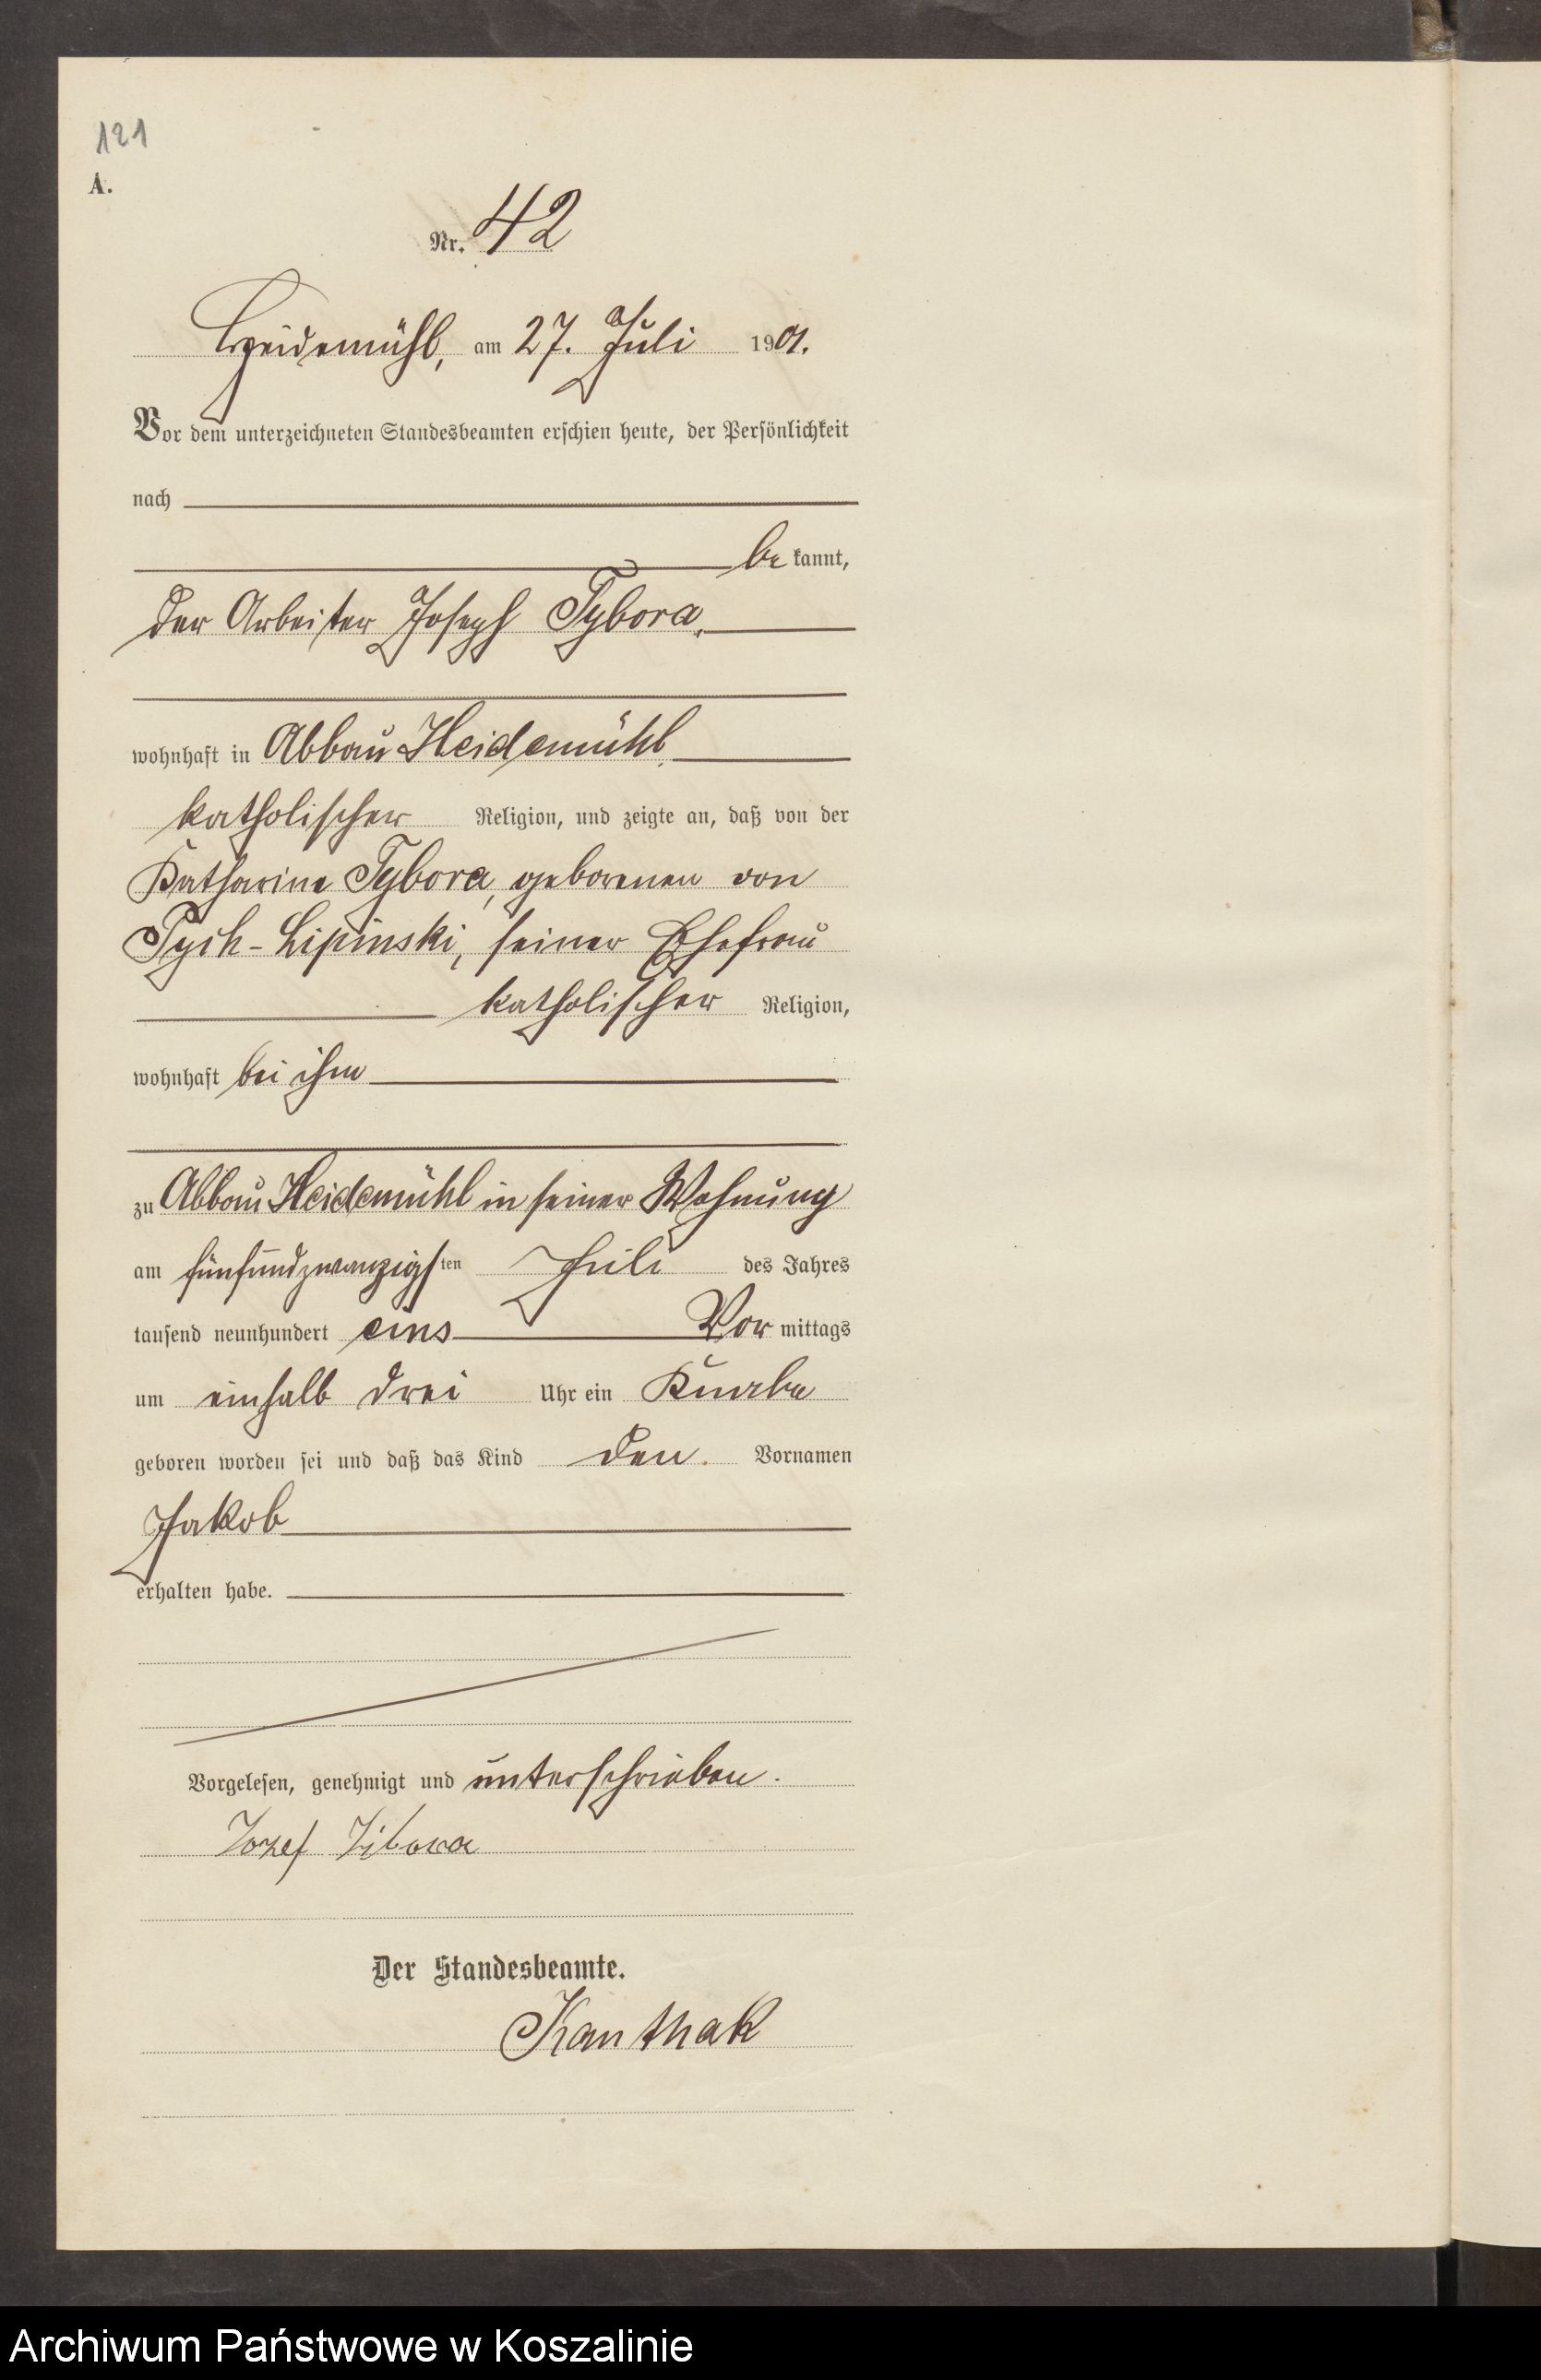 121
A.
Nr. 42
Heidemühl, am 27. Juli 1901.
Vor dem unterzeichneten Standesbeamten erschien heute, der Persönlichkeit
nach
be kannt,
der Arbeiter Joseph Tybora,
wohnhaft in Abbau Heidemühl,
katholischer Religion, und zeigte an, daß von der
Katharina Tybora, geborenen von
Pych-Lipinski, seiner Ehefrau
katholischer Religion,
wohnhaft bei ihm
zu Abbau Heidemühl in seiner Wohnung
am fünfundzwanzigsten Juli des Jahres
tausend neunhundert eins Vor mittags
um einhalb drei Uhr ein Knabe
geboren worden sei und daß das Kind den Vornamen
Jakob
erhalten habe.
Vorgelesen, genehmigt und unterschrieben.
Jozef Tibora
Der Standesbeamte.
Kanthak
Archiwum Państwowe w Koszalinie